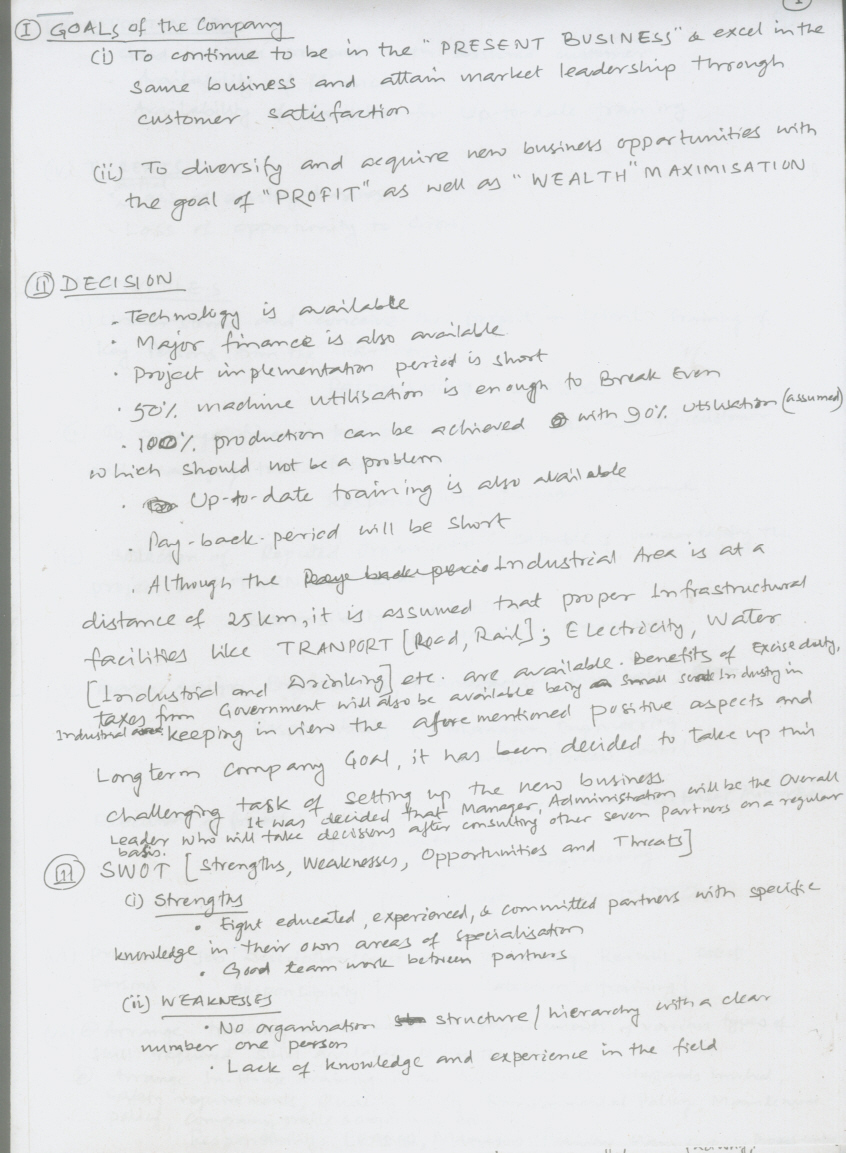 1
I GOALS of the Company
(i) To continue to be in the "PRESENT BUSINESS" & excel in the
same business and attain market leadership through
customer satisfaction
(ii) To diversify and acquire new business opportunities with
the goal of "PROFIT" as well as "WEALTH" MAXIMISATION
II DECISION
- Technology is available
• Major finance is also available
• Project implementation period is short
• 50% machine utilisation is enough to Break Even
• 100% production can be achieved with 90% utilisation (assumed)
which should not be a problem
• Up-to-date training is also available
• Pay-back-period will be short
• Although the Industrial Area is at a
distance of 25 km, it is assumed that proper Infrastructural
facilities like TRANPORT [Road, Rail]; Electricity, Water
[Industrial and Drinking] etc. are available. Benefits of Excise duty,
taxes from Government will also be available being small Industry in
Industrial keeping in view the aforementioned positive aspects and
Long term Company Goal, it has been decided to take up this
challenging task of setting up the new business.
It was decided that Manager, Administration will be the Overall
Leader who will take decisions after consulting other seven partners on a regular
basis.
III SWOT [Strengths, Weaknesses, Opportunities and Threats]
(i) Strengths
• Eight educated, experienced, & committed partners with specific
knowledge in their own areas of specialisation
• Good team work between partners
(ii) WEAKNESSES
• No organisation structure/hierarchy with a clear
number one person
• Lack of knowledge and experience in the field